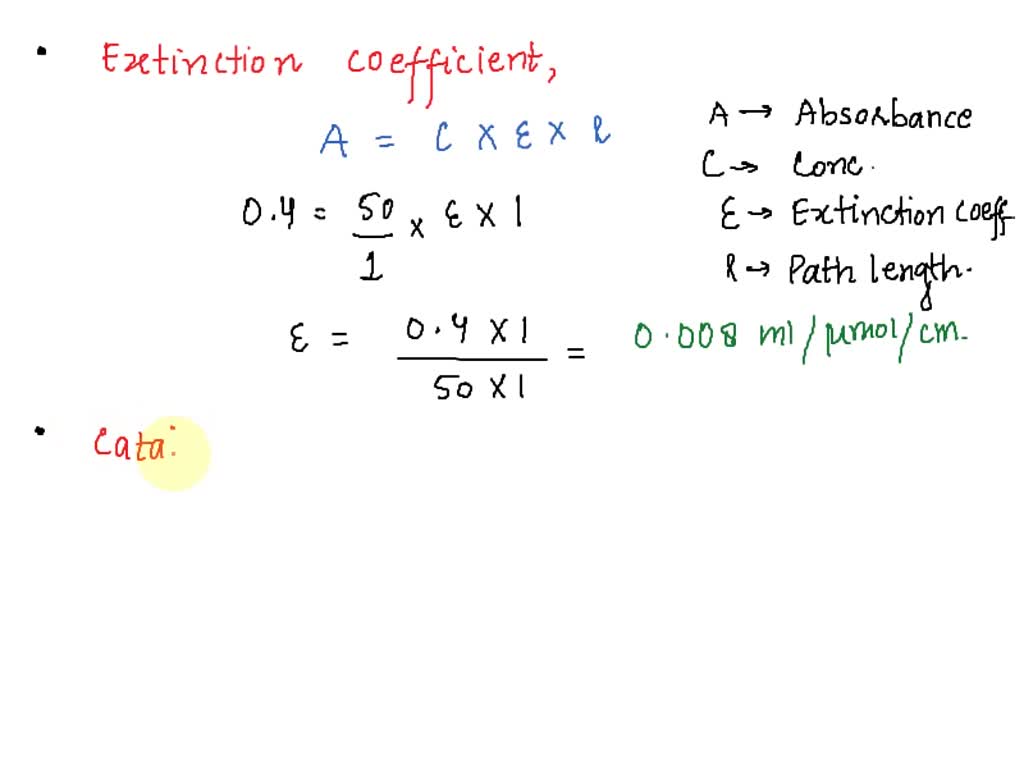 • Extinction coefficient,
A = C X ε X l
A → Absorbance
C → Conc.
ε → Extinction coeff
l → Path length.
0.4 = 50/1 x ε X 1
ε = 0.4 X 1 / 50 X 1 = 0.008 ml/μmol/cm.
• Cata